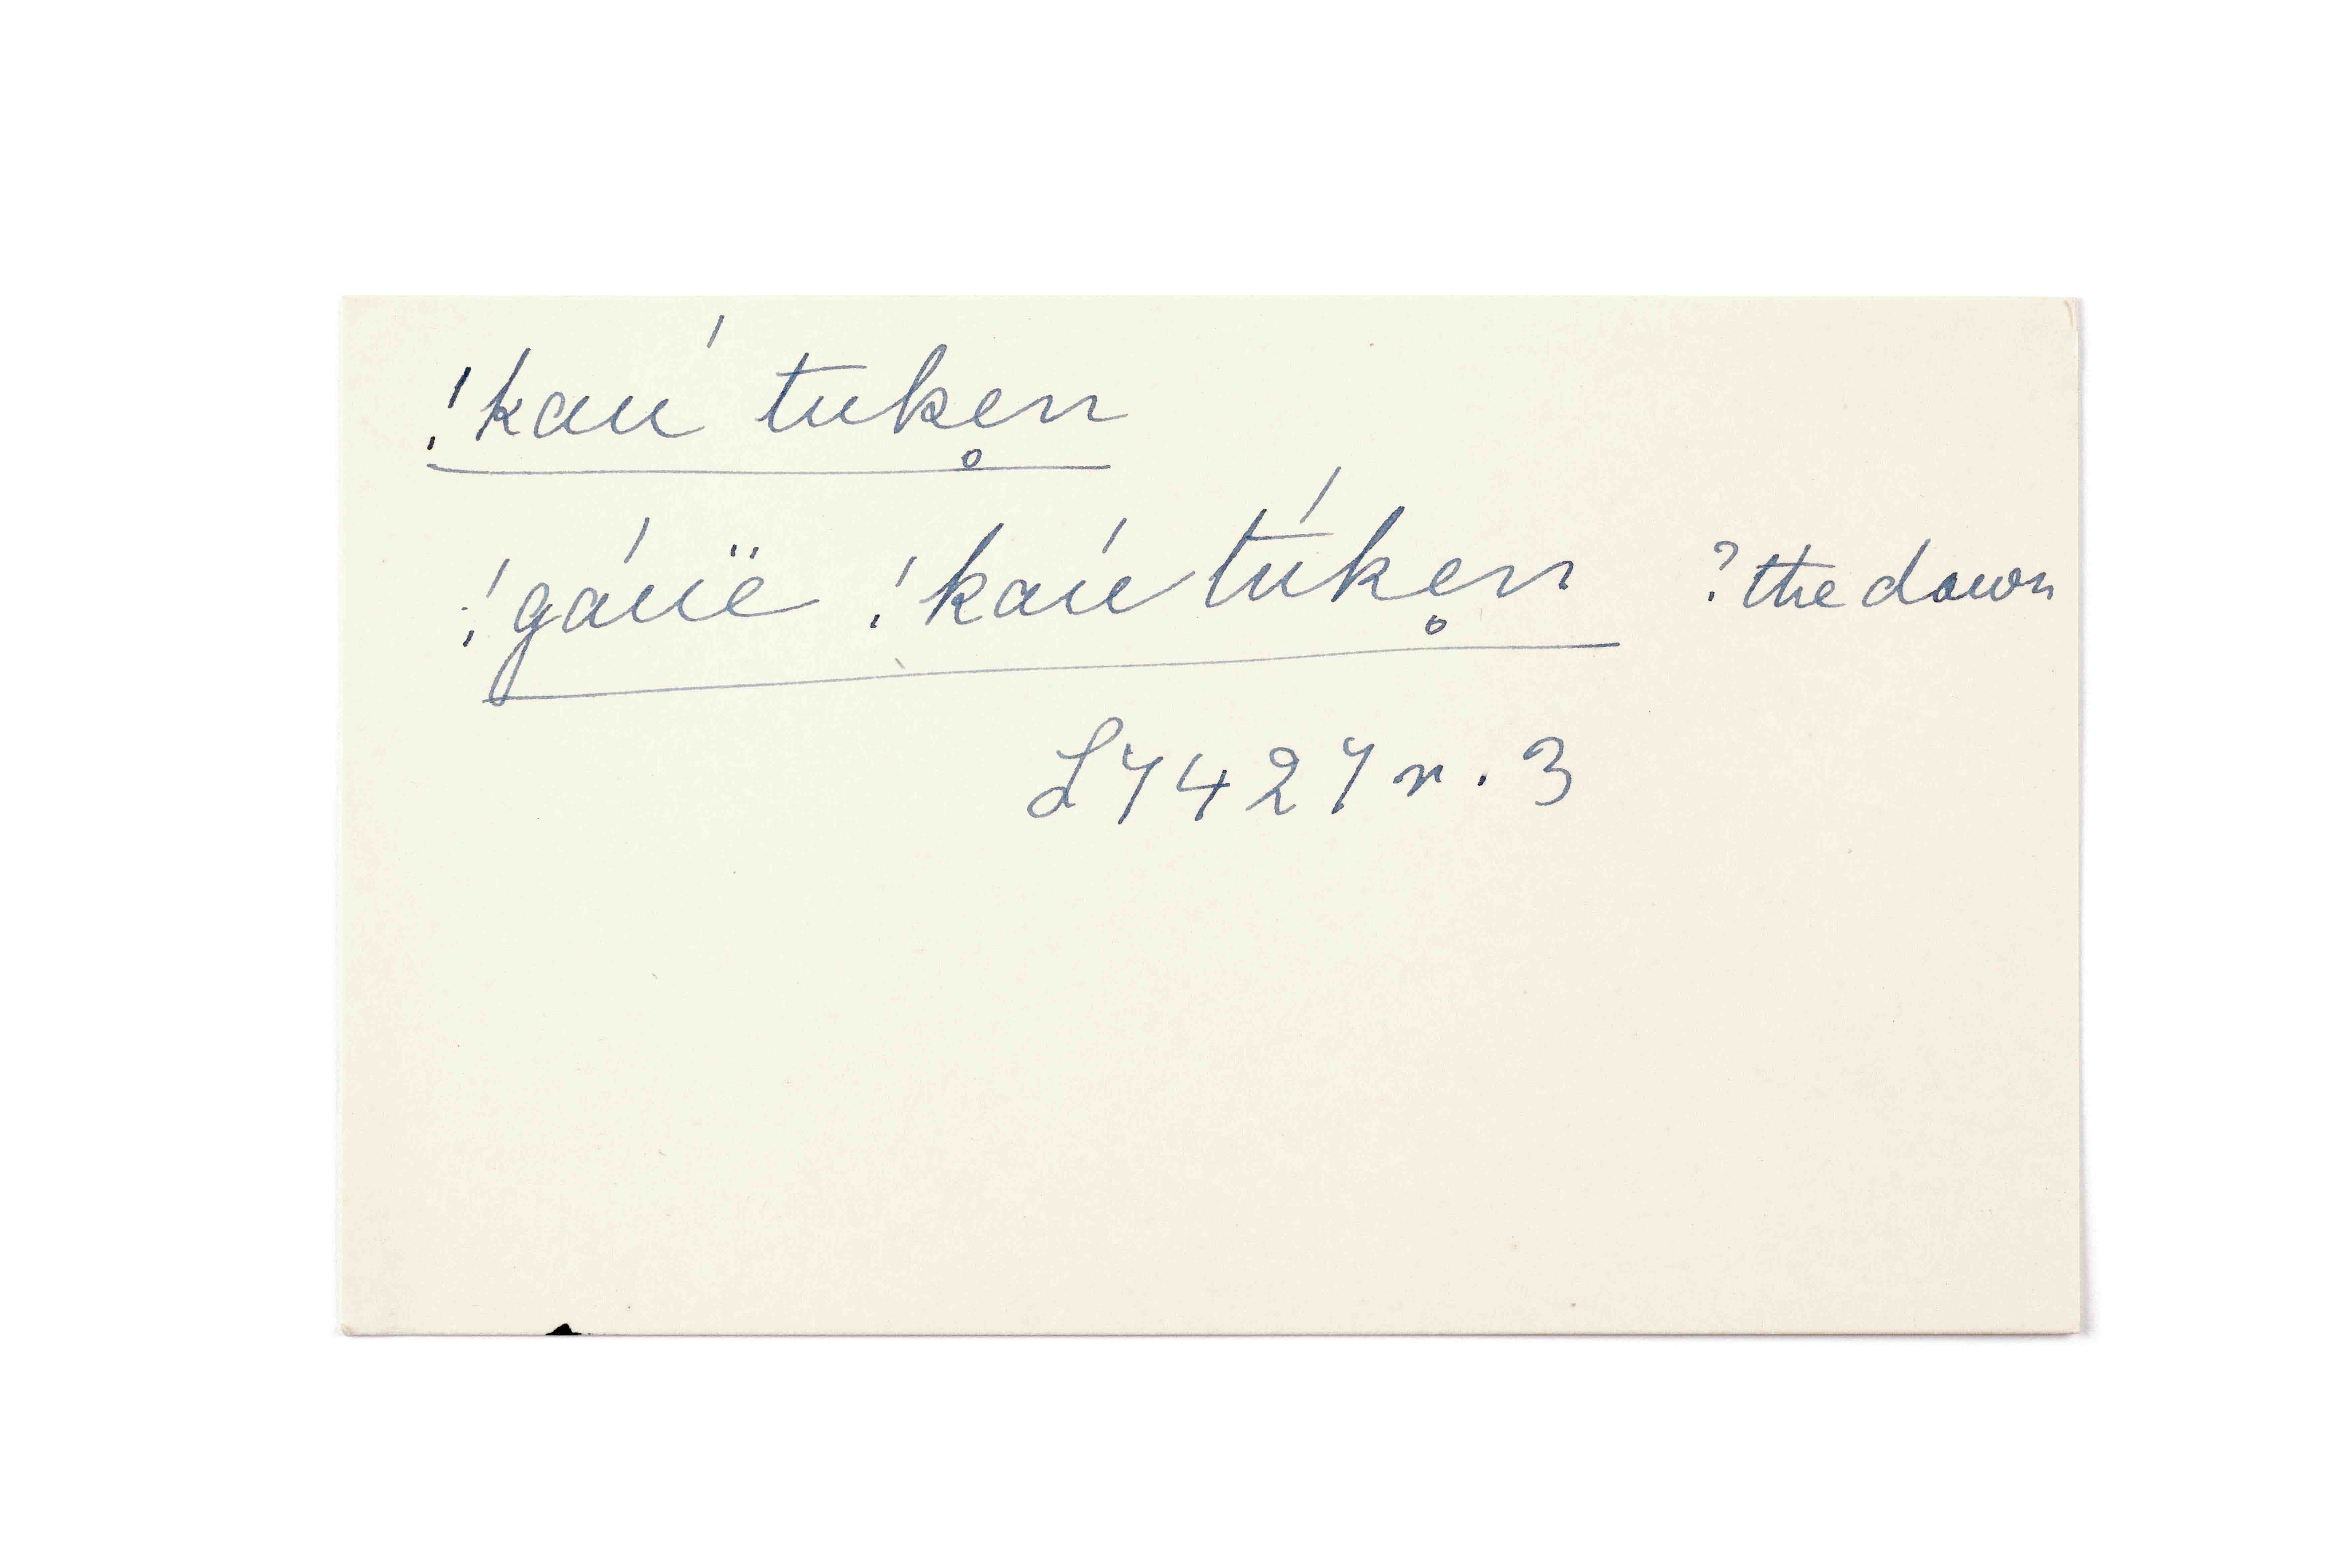 !kaú tuken̥
!gáuë !kaú túken̥ ? the dawn
L7427 r. 3